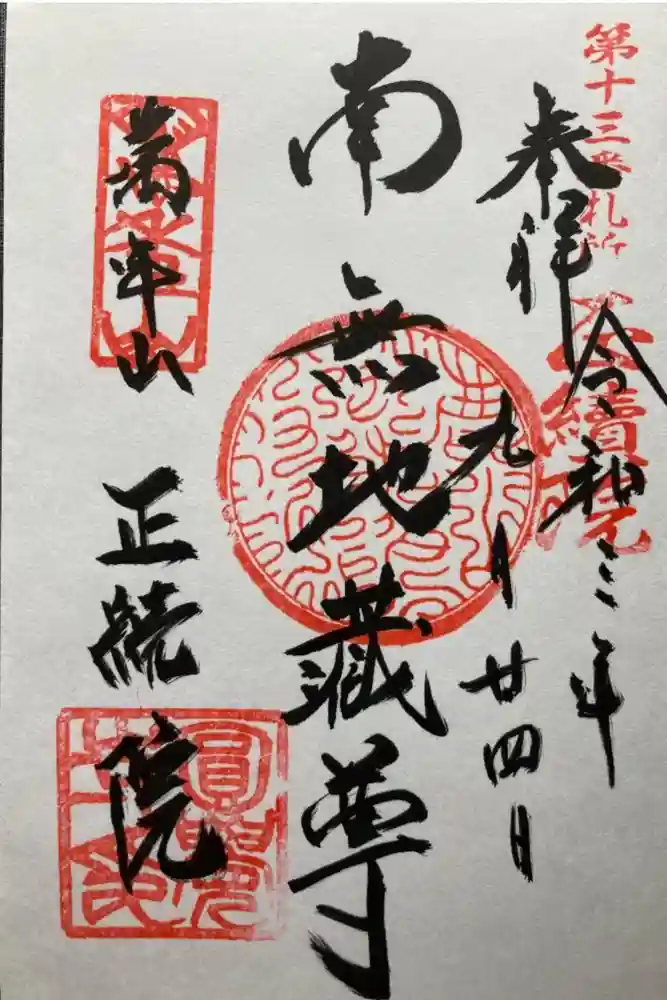 第十三番札所
正續院
奉拝
令和三年
九月廿四日
南無地蔵尊
萬年山
正続院